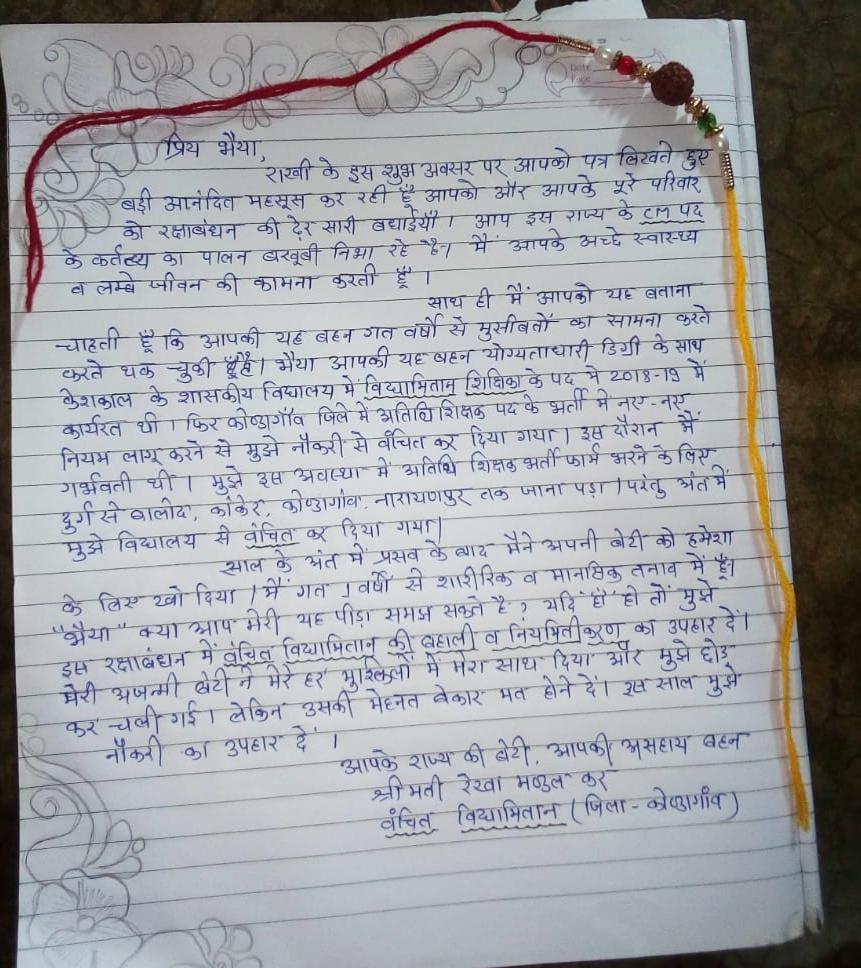 Date
Page
प्रिय भैया,
राखी के इस शुभ अवसर पर आपको पत्र लिखते हुए
बड़ी आनंदित महसूस कर रही हूँ आपको और आपके पूरे परिवार
को रक्षाबंधन की ढेर सारी बधाईयाँ। आप इस राज्य के CM पद
के कर्तव्य का पालन बखूबी निभा रहे है। मैं आपके अच्छे स्वास्थ्य
व लम्बे जीवन की कामना करती हूँ ।
साथ ही मैं आपको यह बताना
चाहती हूँ कि आपकी यह बहन गत वर्षो से मुसीबतों का सामना करते
करते थक चुकी है। भैया आपकी यह बहन योग्यताधारी डिग्री के साथ
केशकाल के शासकीय विद्यालय में विद्यामितान शिक्षिका के पद मे 2018-19 में
कार्यरत थी । फिर कोण्डागाँव जिले में अतिथि शिक्षक पद के भर्ती में नए-नए
नियम लागू करने से मुझे नौकरी से वंचित कर दिया गया । इस दौरान मैं
गर्भवती थी । मुझे इस अवस्था में अतिथि शिक्षक भर्ती फार्म भरने के लिए
दुर्ग से बालोद, कांकेर, कोण्डागांव, नारायणपुर तक जाना पड़ा । परंतु अंत में
मुझे विद्यालय से वंचित कर दिया गया।
साल के अंत में प्रसव के बाद मैने अपनी बेटी को हमेशा
के लिए खो दिया । मैं गत 1 वर्षो से शारीरिक व मानसिक तनाव में हूँ।
"भैया" क्या आप मेरी यह पीड़ा समझ सकते है ? यदि हाँ हो तो मुझे
इस रक्षाबंधन में वंचित विद्यामितान की बहाली व नियमितीकरण का उपहार दें।
मेरी अजन्मी बेटी ने मेरे हर मुश्किलों में मेरा साथ दिया और मुझे छोड़
कर चली गई । लेकिन उसकी मेहनत बेकार मत होने दें । इस साल मुझे
नौकरी का उपहार दें ।
आपके राज्य की बेटी, आपकी असहाय बहन
श्रीमती रेखा मण्डल कर
वंचित विद्यामितान (जिला - कोण्डागाँव)